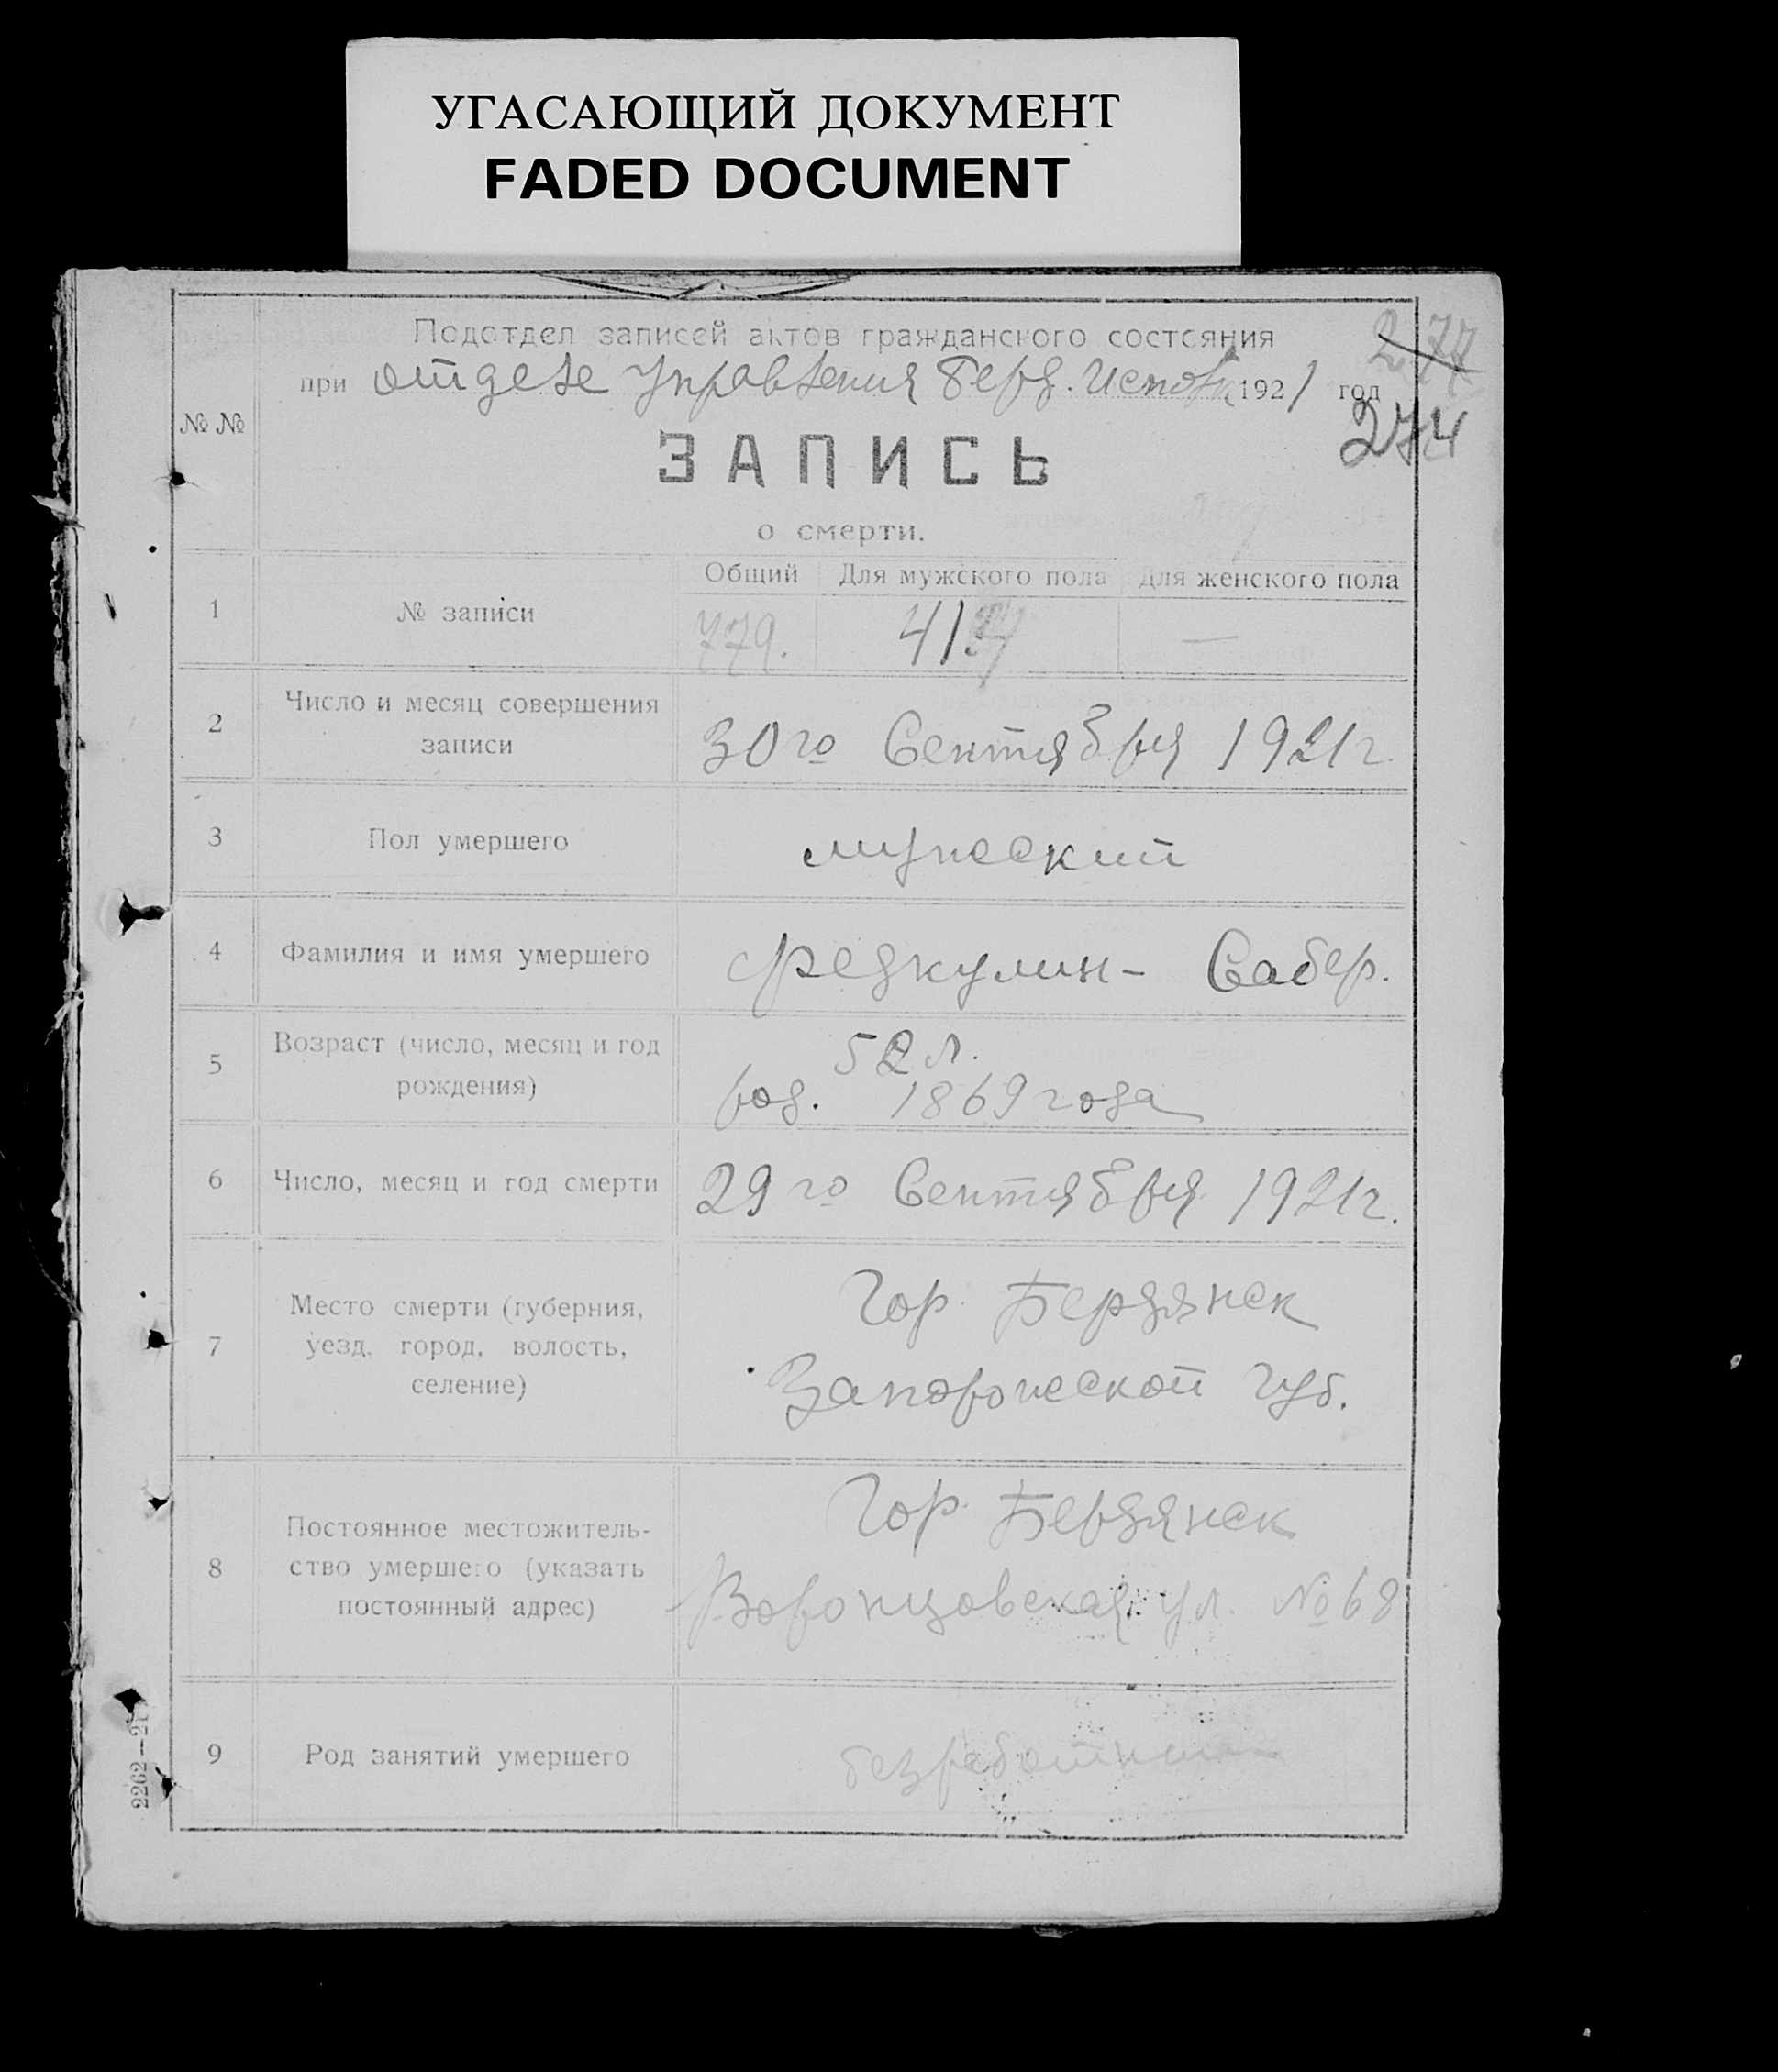 УГАСАЮЩИЙ ДОКУМЕНТ
FADED DOCUMENT
Подотдел записей актов гражданского состояния
при отделе Управления Берд. Исполк 1921 год
277
274
№ №
ЗАПИСЬ
о смерти.
Общий Для мужского пола Для женского пола
1 № записи 779. —
2 Число и месяц совершения
записи 30го Сентября 1921г.
3 Пол умершего мужской
4 Фамилия и имя умершего Сабер.
5 Возраст (число, месяц и год
рождения)
52 л.
род. 1869 года
6 Число, месяц и год смерти 29го Сентября 1921г.
7 Место смерти (губерния,
уезд, город, волость,
селение)
Гор. Бердянск
Запорожской губ.
8 Постоянное местожитель-
ство умершего (указать
постоянный адрес)
Гор. Бердянск
Воронцовская ул. № 68
9 Род занятий умершего
2262—21